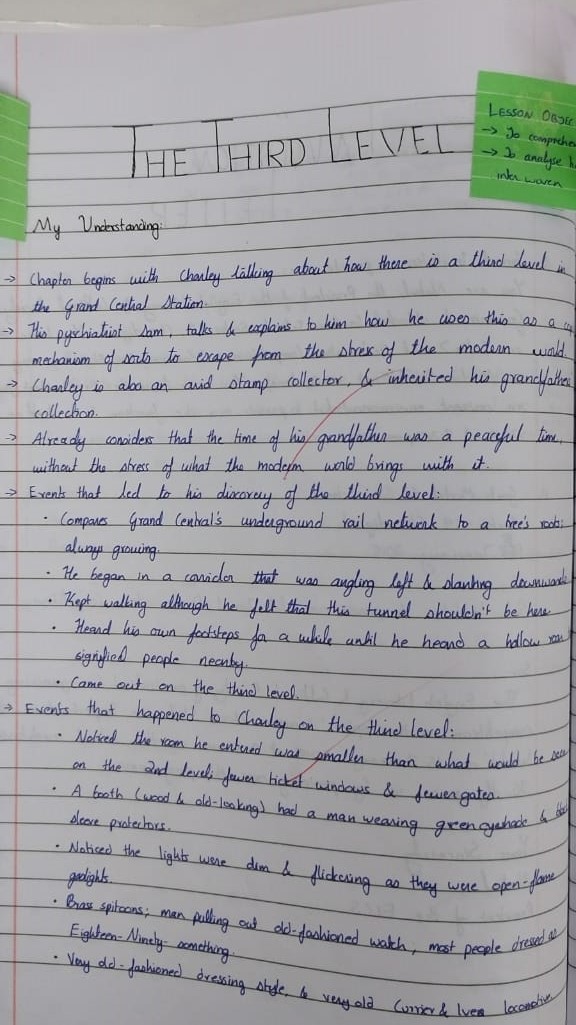 THE THIRD LEVEL
LESSON OBJEC
→ To comprehen
→ To analyse h
inter woven
My Understanding:
→ Chapter begins with Charley talking about how there is a third level in
the Grand Central Station.
→ His pyschiatrist Sam, talks & explains to him how he uses this as a
mechanism of sorts to escape from the stress of the modern world.
→ Charley is also an avid stamp collector, & inherited his grandfather
collection.
→ Already considers that the time of his grandfather was a peaceful time,
without the stress of what the modern world brings with it.
→ Events that led to his discovery of the third level:
• Compares Grand Central's underground rail network to a tree's roots:
always growing.
• He began in a corridor that was angling left & slanting downwards
• Kept walking although he felt that this tunnel shouldn't be here.
• Heard his own footsteps for a while until he heard a hollow roar
signified people nearby.
• Came out on the third level.
→ Events that happened to Charley on the third level:
• Noticed the room he entered was smaller than what would be seen
on the 2nd level; fewer ticket windows & fewer gates.
• A booth (wood & old-looking) had a man wearing green eyeshade &
sleeve protectors.
• Noticed the lights were dim & flickering as they were open-flame
gaslights.
• Brass spitoons; man pulling out old-fashioned watch, most people dressed as
Eighteen-Ninety-something.
• Very old-fashioned dressing style, & very old Currier & Ives locomotive